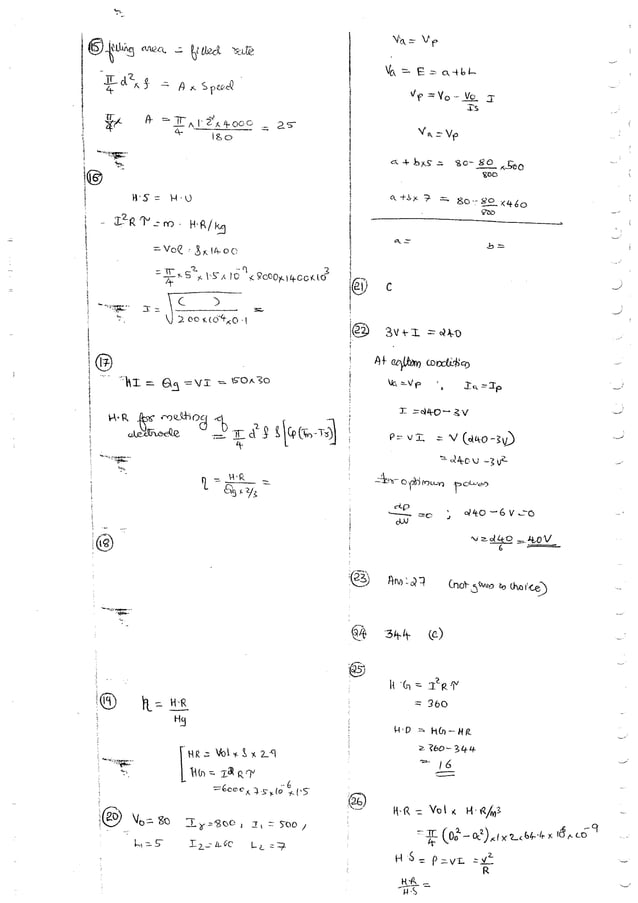 (15) filling area = filled rate
π/4 d² × f = A × Speed
π/4 × A = π/4 × 1.2² × 4000 / 180 = 25
(16)
H.S = H.U
I²Rτ = m . H.R/kg
= Vol . ρ × 1400
= π/4 × 5² × 1.5 × 10⁻⁹ × 8000 × 1400 × 10³
I = √( ( ) / 200×10⁻⁶×0.1 ) =
(17)
HI = Qg = VI = 150×30
H.R for melting of
electrode = π/4 d² f ρ [Cp(Tm-Tr)]
η = H.R / Qg × 2/3 =
(18)
(19) η = H.R / Hg
HR = Vol × ρ × 29
HG = I² R τ
= 6000 × 75×10⁻⁶ × 1.5
(20) V₀ = 80 Is = 800, I₁ = 500,
L₁ = 5 I₂ = 460 L₂ = 7
Va = Vp
Va = E = a+bL
Vp = V₀ - V₀/Is I
Va = Vp
a + b×5 = 80 - 80/800 × 500
a + b × 7 = 80 - 80/800 × 460
a = b =
(21) C
(22) 3V + I = 240
At eqlbm condition
Va = Vp , Ia = Ip
I = 240 - 3V
P = VI = V (240 - 3V)
= 240V - 3V²
for optimum power
dp/dv = 0 ; 240 - 6V = 0
v = 240/6 = 40V
(23) Ans: 27 (not given in choice)
(24) 344 (C)
(25)
H.G = I²Rτ
= 360
H.D = HG - HR
= 360 - 344
= 16
(26)
H.R = Vol × H.R/m³
= π/4 (D₀² - Dc²) × 1 × 2 × 64.4 × 10⁶ × 10⁻⁹
H S = P = VI = V²/R
H.R / H.S =